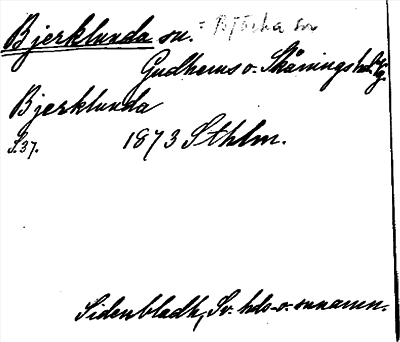 Bjerklunda sn.
Gudhems o. Skånings hd. Vg.
Bjerklunda
S. 37. 1873 Sthlm.
Sidenbladh, Sv. hds- o. snnamn.